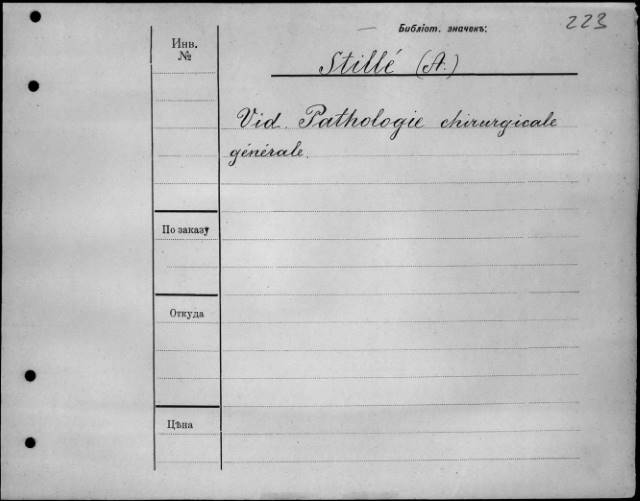 223
Библіот. значекъ:
Инв.
№
Stillé (A.)
Vid. Pathologie chirurgicale
générale.
По заказу
Откуда
Цѣна